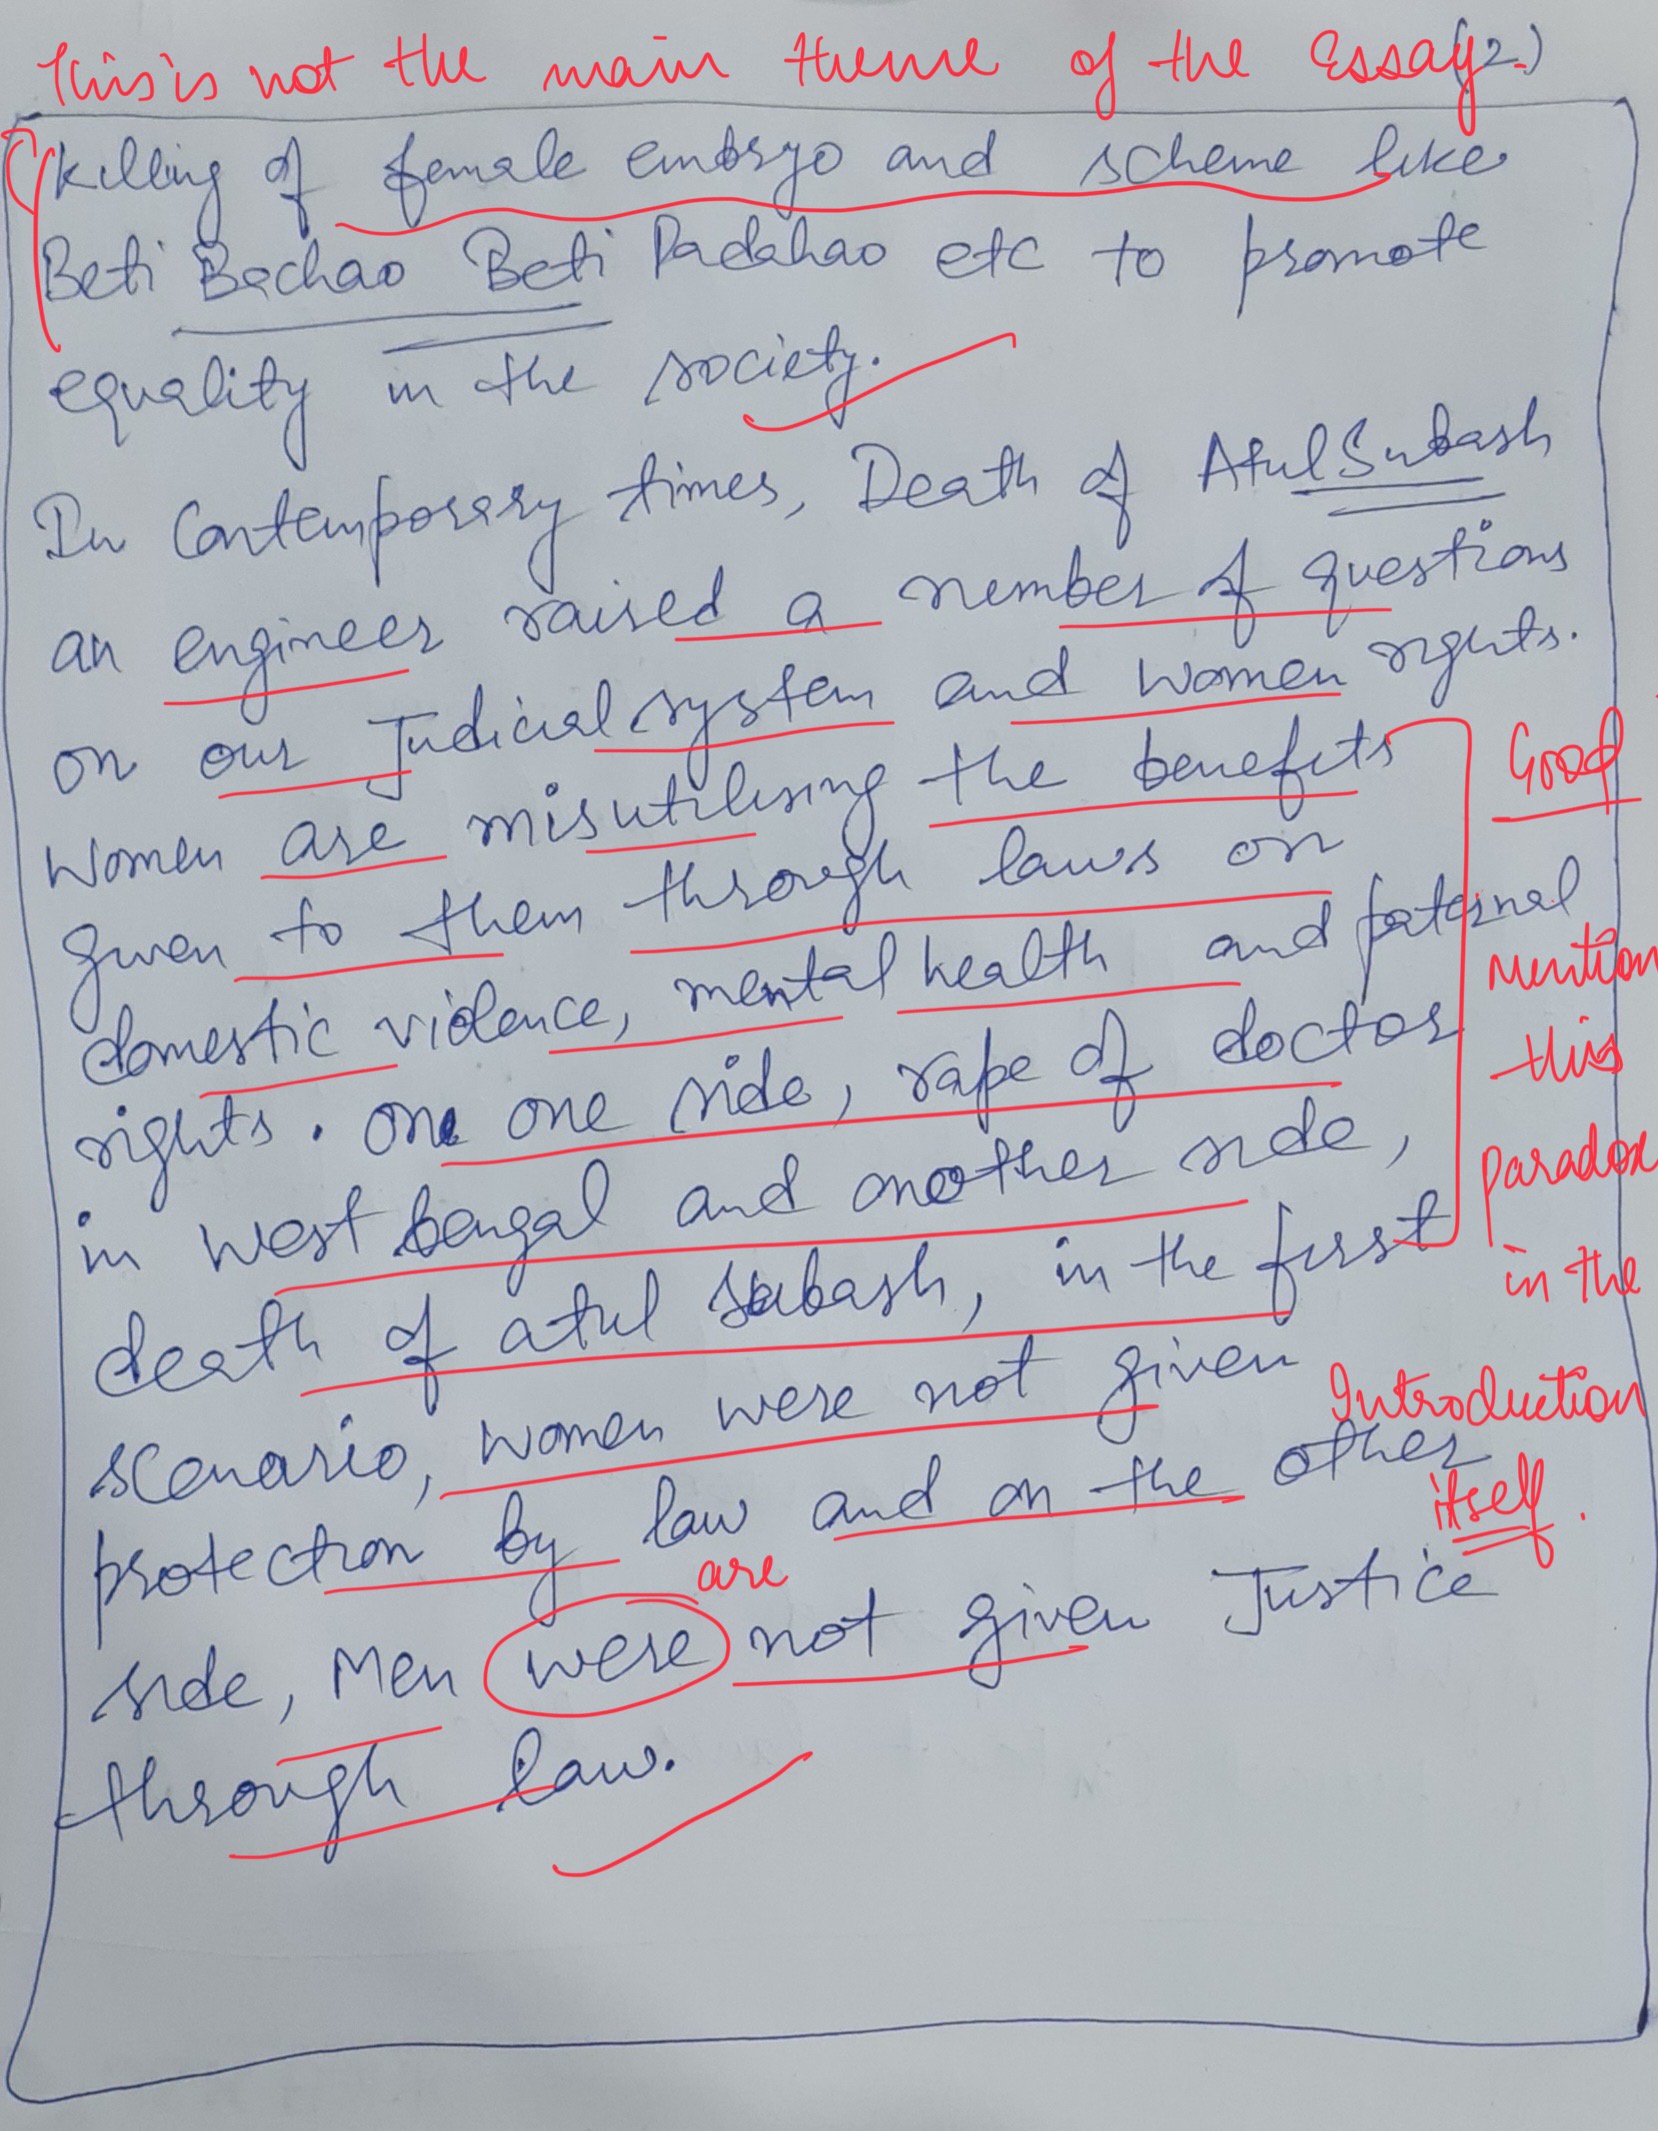 This is not the main theme of the Essay.
(2)
killing of female embryo and scheme like
Beti Bachao Beti Padahao etc to promote
equality in the society.
In Contemporary times, Death of Atul Subash
an engineer raised a number of questions
on our Judicial system and women rights.
Women are misutilising the benefits
given to them through laws on
domestic violence, mental health and paternal
rights. One one side, rape of doctor
in west bengal and another side,
death of atul subash, in the first
scenario, women were not given
protection by law and on the other
side, Men were not given Justice
are
through law.
Good
mention
this
paradox
in the
Introduction
itself.